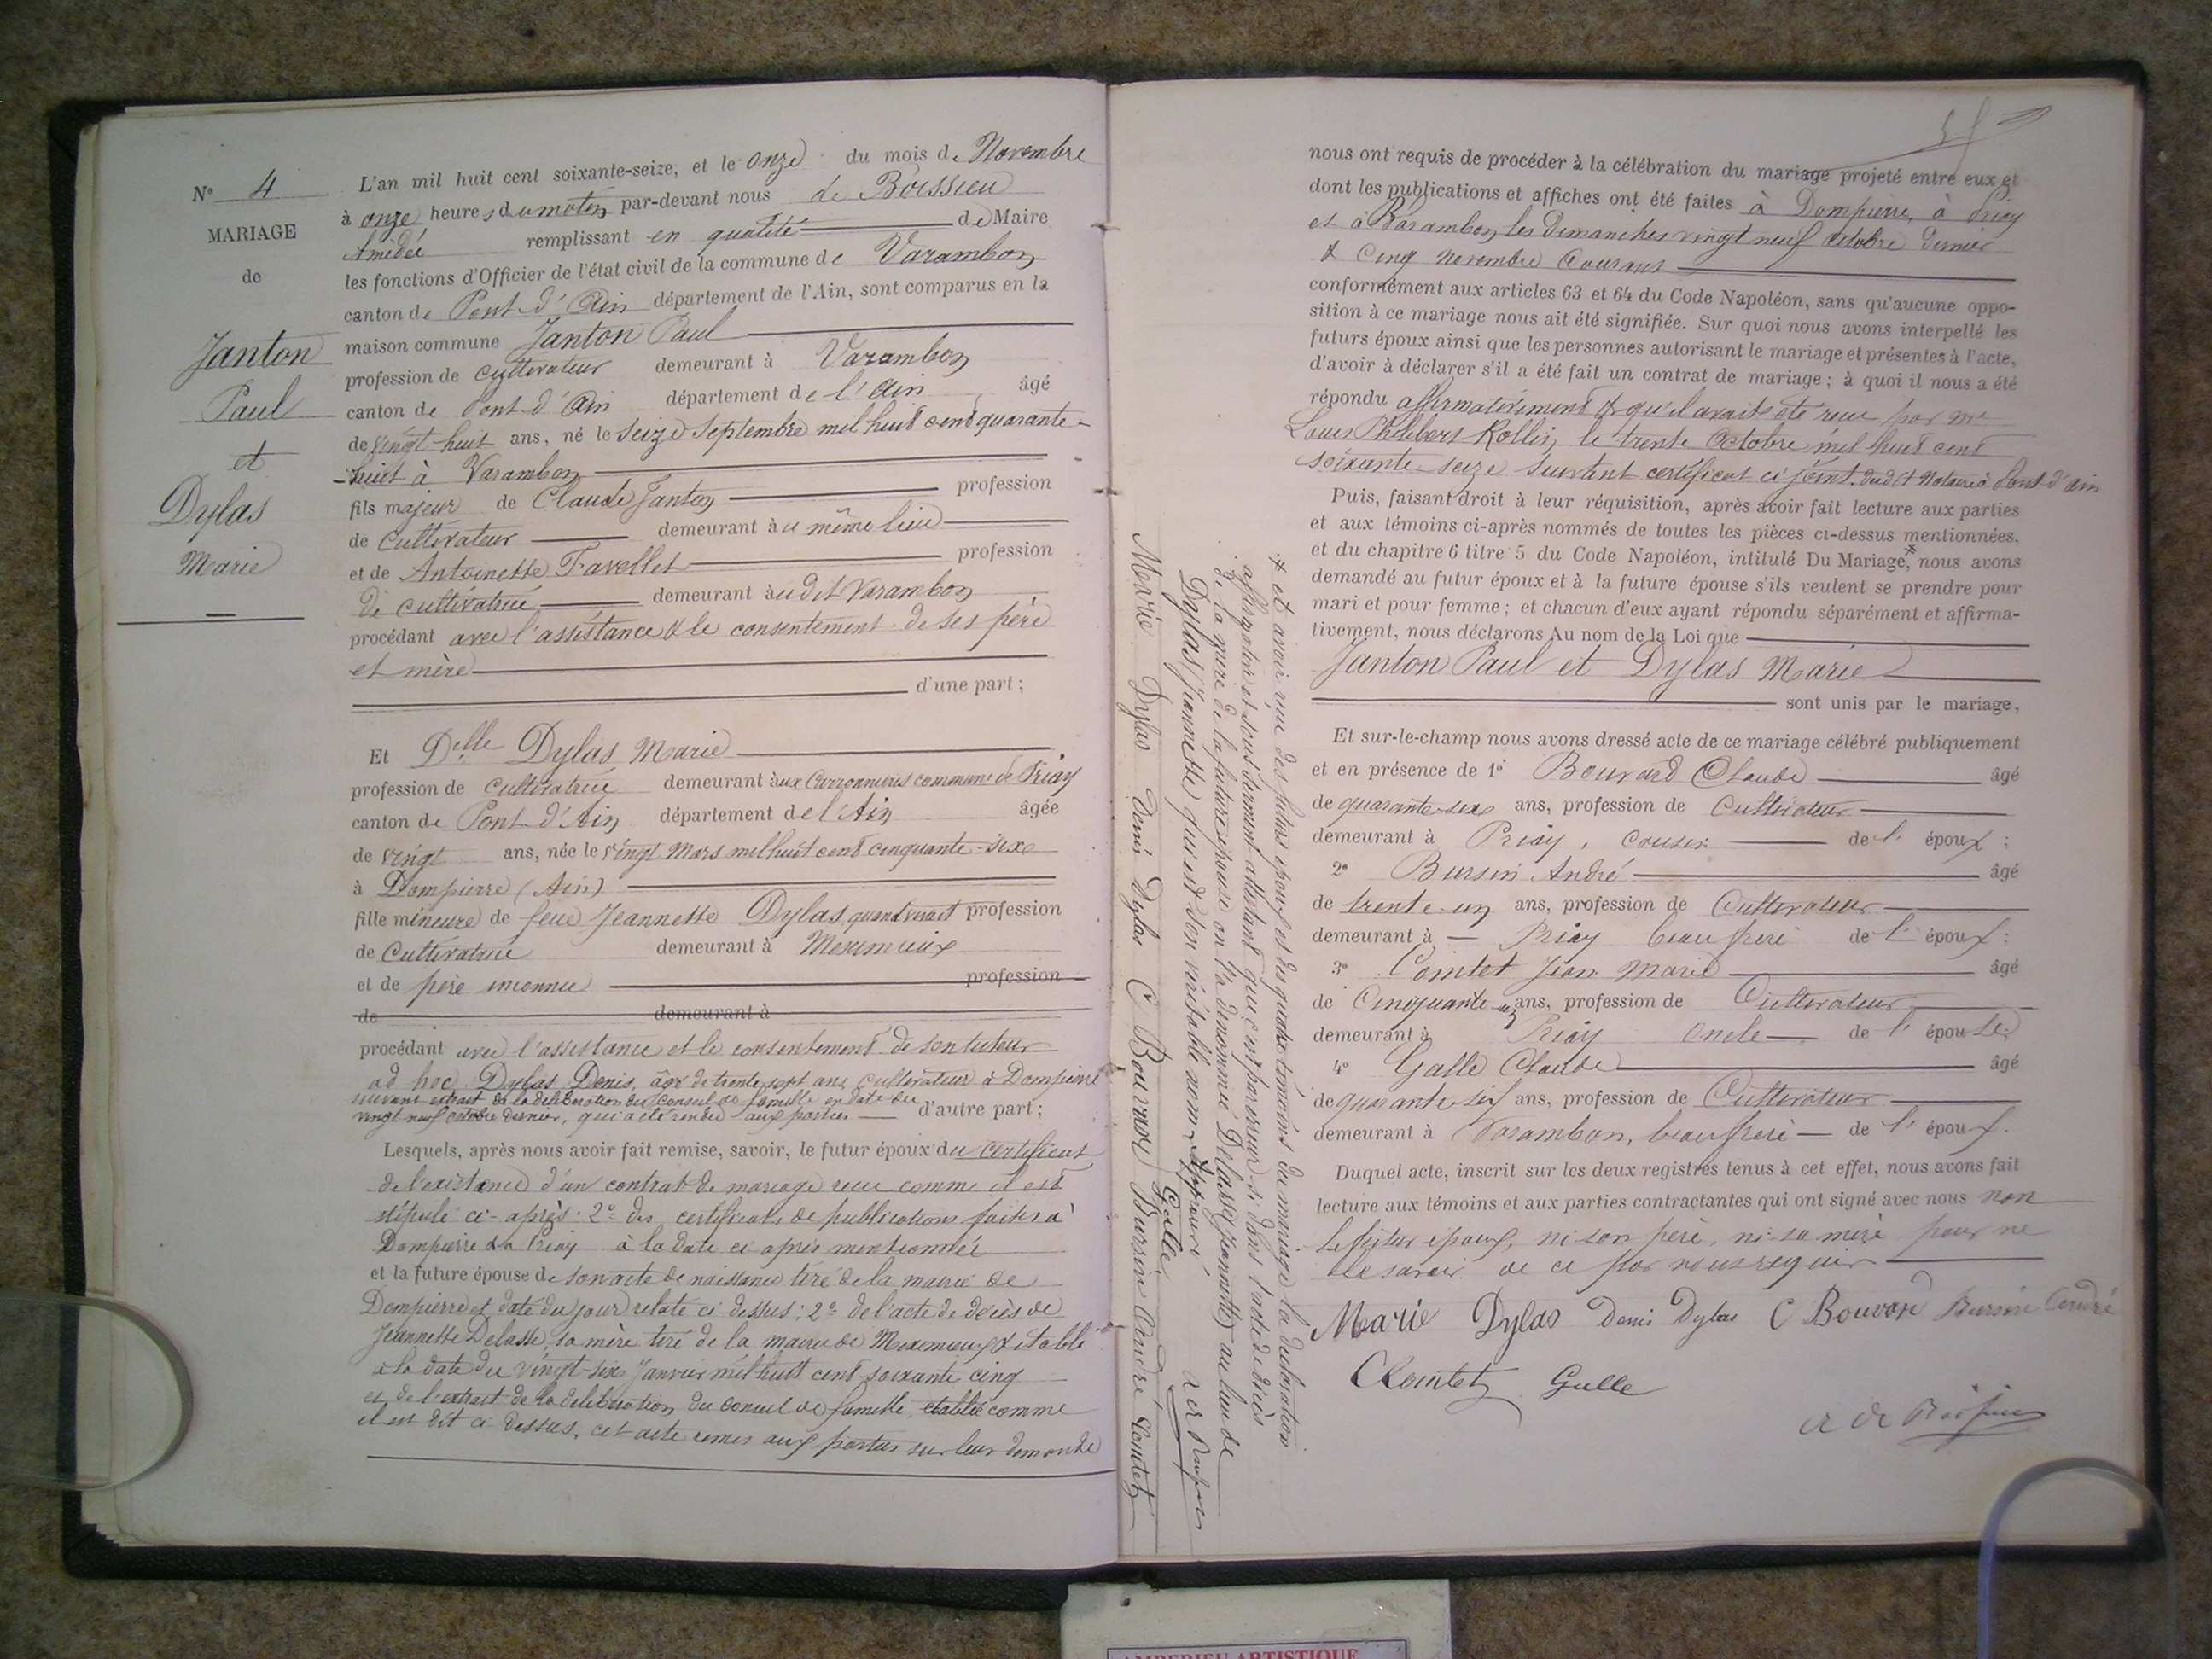 N° 4
MARIAGE
de
Janton
Paul
et
Dylas
Marie
L'an mil huit cent soixante-seize, et le onze du mois de Novembre
à onze heures du matin par-devant nous de Boissieu
Amédée remplissant en qualité de Maire
les fonctions d'Officier de l'état civil de la commune de Varambon
canton de Pont d'Ain département de l'Ain, sont comparus en la
maison commune Janton Paul
profession de cultivateur demeurant à Varambon
canton de Pont d'Ain département de l'Ain âgé
de vingt-huit ans, né le seize Septembre mil huit cent quarante-
-huit à Varambon
fils majeur de Claude Janton profession
de cultivateur demeurant au même lieu
et de Antoinette Favellet profession
de cultivatrice demeurant au dit Varambon
procédant avec l'assistance & le consentement de ses père
et mère
d'une part;
Et Delle Dylas Marie
profession de cultivatrice demeurant aux Carronnières commune de Priay
canton de Pont d'Ain département de l'Ain âgée
de vingt ans, née le vingt Mars mil huit cent cinquante-six
à Dompierre (Ain)
fille mineure de feue Jeannette Dylas quand vivait profession
de cultivatrice demeurant à Meximieux
et de père inconnu profession
de demeurant à
procédant avec l'assistance et le consentement de son tuteur
ad hoc Dylas Denis, âgé de trente sept ans cultivateur à Dompierre
suivant extrait de la délibération du Conseil de famille en date du
vingt neuf octobre dernier, qui a été rendu aux parties d'autre part;
Lesquels, après nous avoir fait remise, savoir, le futur époux du certificat
de l'existence d'un contrat de mariage reçu comme il est
stipulé ci-après: 2° des certificats de publications faites à
Dompierre & à Priay à la date ci après mentionnée
et la future épouse de son acte de naissance tiré de la mairie de
Dompierre et daté du jour relaté ci dessus: 2° de l'acte de décès de
Jeannette Delasse, sa mère tiré de la mairie de Meximieux & établi
à la date du vingt-six Janvier mil huit cent soixante cinq
et de l'extrait de la délibération du conseil de famille établie comme
il est dit ci dessus, cet acte remis aux parties sur leur demande
x et avoir reçu des futurs époux et des quatre témoins du mariage la déclaration
affirmative et sous serment attestant que c'est par erreur si dans l'acte de décès
de la mère de la future épouse on l'a dénommée Delasse Jeannette, au lieu de
Dylas Jeannette qui est son véritable nom. Approuvé A de Boissieu
Galle
Marie Dylas Denis Dylas C Bouvard Bursin André Comtet
nous ont requis de procéder à la célébration du mariage projeté entre eux et
dont les publications et affiches ont été faites à Dompierre, à Priay
et à Varambon les Dimanches vingt neuf octobre dernier
& cinq novembre courant
conformément aux articles 63 et 64 du Code Napoléon, sans qu'aucune oppo-
sition à ce mariage nous ait été signifiée. Sur quoi nous avons interpellé les
futurs époux ainsi que les personnes autorisant le mariage et présentes à l'acte,
d'avoir à déclarer s'il a été fait un contrat de mariage; à quoi il nous a été
répondu affirmativement & qu'il avait été reçu par Me
Louis Philibert Rollin, le trente Octobre mil huit cent
soixante-seize suivant certificat ci joint. dudit Notaire à Pont d'ain
Puis, faisant droit à leur réquisition, après avoir fait lecture aux parties
et aux témoins ci-après nommés de toutes les pièces ci-dessus mentionnées.
et du chapitre 6 titre 5 du Code Napoléon, intitulé Du Mariage,x nous avons
demandé au futur époux et à la future épouse s'ils veulent se prendre pour
mari et pour femme; et chacun d'eux ayant répondu séparément et affirma-
tivement, nous déclarons Au nom de la Loi que
Janton Paul et Dylas Marie
sont unis par le mariage,
Et sur-le-champ nous avons dressé acte de ce mariage célébré publiquement
et en présence de 1° Bouvard Claude âgé
de quarante-six ans, profession de Cultivateur
demeurant à Priay, cousin de l'époux;
2° Bursin André âgé
de trente-un ans, profession de Cultivateur
demeurant à Priay beau frère de l'époux;
3° Comtet Jean Marie âgé
de Cinquante un ans, profession de Cultivateur
demeurant à Priay oncle de l'épouse;
4° Galle Claude âgé
de quarante six ans, profession de Cultivateur
demeurant à Varambon, beau frère de l'époux.
Duquel acte, inscrit sur les deux registres tenus à cet effet, nous avons fait
lecture aux témoins et aux parties contractantes qui ont signé avec nous non
le futur époux, ni son père, ni sa mère pour ne
le savoir de ce par nous requis
Marie Dylas Denis Dylas C Bouvard Bursin André
Comtet Galle
A de Boissieu
AMBERIEU ARTISTIQUE